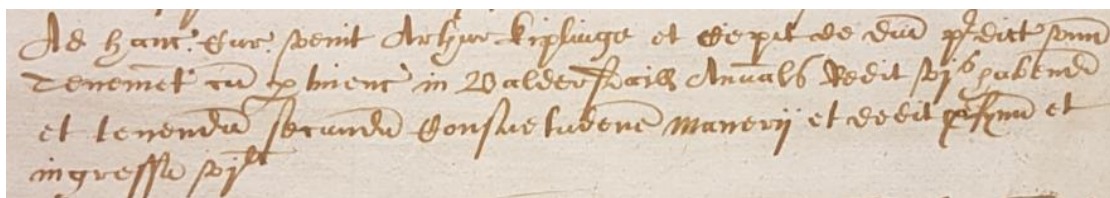 Ad hanc Cur venit Arthur Kiplinge et cepit de dno pdict unu
Tenement cu ptinenc in Balder Annuals Redit vjs habend
et tenendu secundu Consuetudene Manerij et dedit p fyne et
ingressu